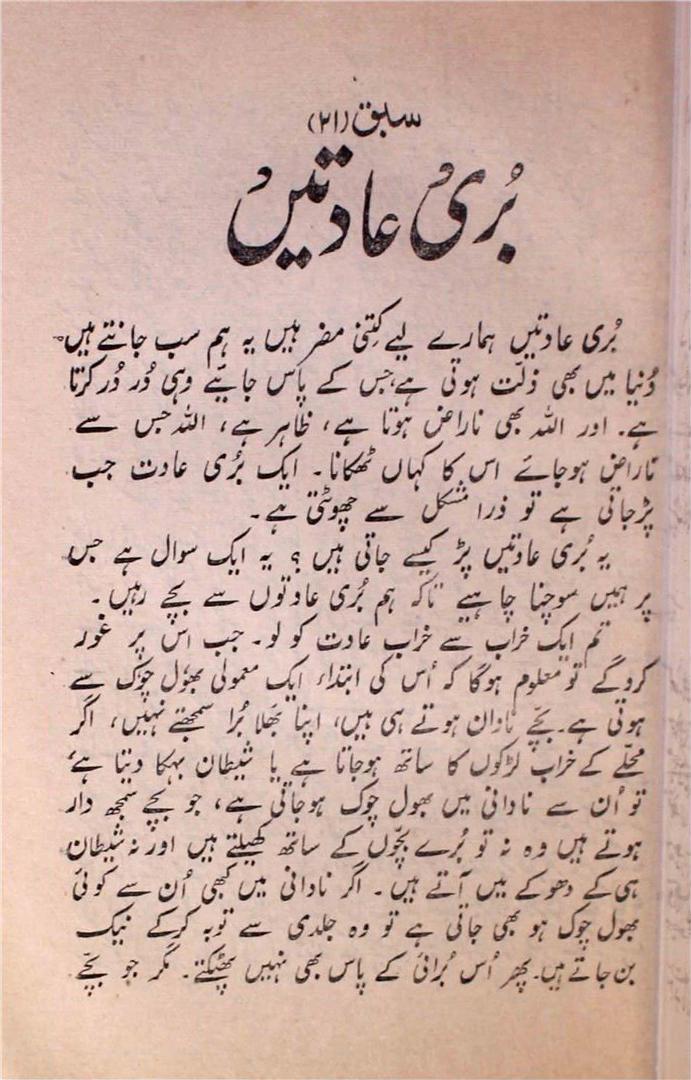 سبق (۲۱)
بُری عادتیں
بُری عادتیں ہمارے لیے کِتنی مضر ہیں یہ ہم سب جانتے ہیں۔
دُنیا میں بھی ذلّت ہوتی ہے، جس کے پاس جایئے وہی دُر دُر کرتا
ہے۔ اور اللہ بھی ناراض ہوتا ہے، ظاہر ہے، اللہ جس سے
ناراض ہو جائے اس کا کہاں ٹھکانا۔ ایک بُری عادت جب
پڑ جاتی ہے تو ذرا مشکل سے چھوٹتی ہے۔
یہ بُری عادتیں پڑ کیسے جاتی ہیں؟ یہ ایک سوال ہے جس
پر ہمیں سوچنا چاہیے تاکہ ہم بُری عادتوں سے بچے رہیں۔
تم ایک خراب سے خراب عادت کو لو۔ جب اس پر غور
کرو گے تو معلوم ہوگا کہ اُس کی ابتداء ایک معمولی بھُول چوک سے
ہوتی ہے۔ بچّے نادان ہوتے ہی ہیں، اپنا بھَلا بُرا سمجھتے نہیں، اگر
محلّے کے خراب لڑکوں کا ساتھ ہو جاتا ہے یا شیطان بہکا دیتا ہے،
تو اُن سے نادانی میں بھول چوک ہو جاتی ہے، جو بچّے سمجھ دار
ہوتے ہیں وہ نہ تو بُرے بچّوں کے ساتھ کھیلتے ہیں اور نہ شیطان
ہی کے دھوکے میں آتے ہیں۔ اگر نادانی میں کبھی اُن سے کوئی
بھول چوک ہو بھی جاتی ہے تو وہ جلدی سے توبہ کرکے نیک
بن جاتے ہیں۔ پھر اُس بُرائی کے پاس بھی نہیں پھٹکتے۔ مگر جو بچّے